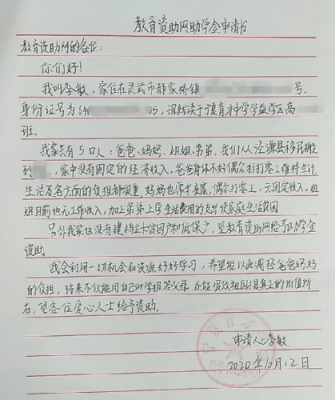 教育资助网助学金申请书
教育资助网的各位:
你们好!
我叫李敏,家住在灵武市郝家桥镇 号,
身份证号为6 05,现就读于 中学 高
班。
我家共有5口人:爸爸、妈妈、姐姐、弟弟。我们从泾源县移民搬
到 ,家中没有固定的经济收入,爸爸身体不好偶尔打打零工维持生计
生活及各方面的负担都很重,妈妈也 ,偶尔打零工,无固定收入,姐
姐目前也无工作收入,加上弟弟上学生活费用的支出使家庭生活贫困
另外我家住没有建档立卡贫困户和低保户,望教育资助网给予助学金
资助。
我会利用一切机会和资源好好学习,希望能以此减轻爸爸妈妈
的负担,将来不仅能用自己的 报答父母,还能实现祖国真正的价值所
在,望各位爱心人士给予资助。
申请人:李敏
2020年10月12日